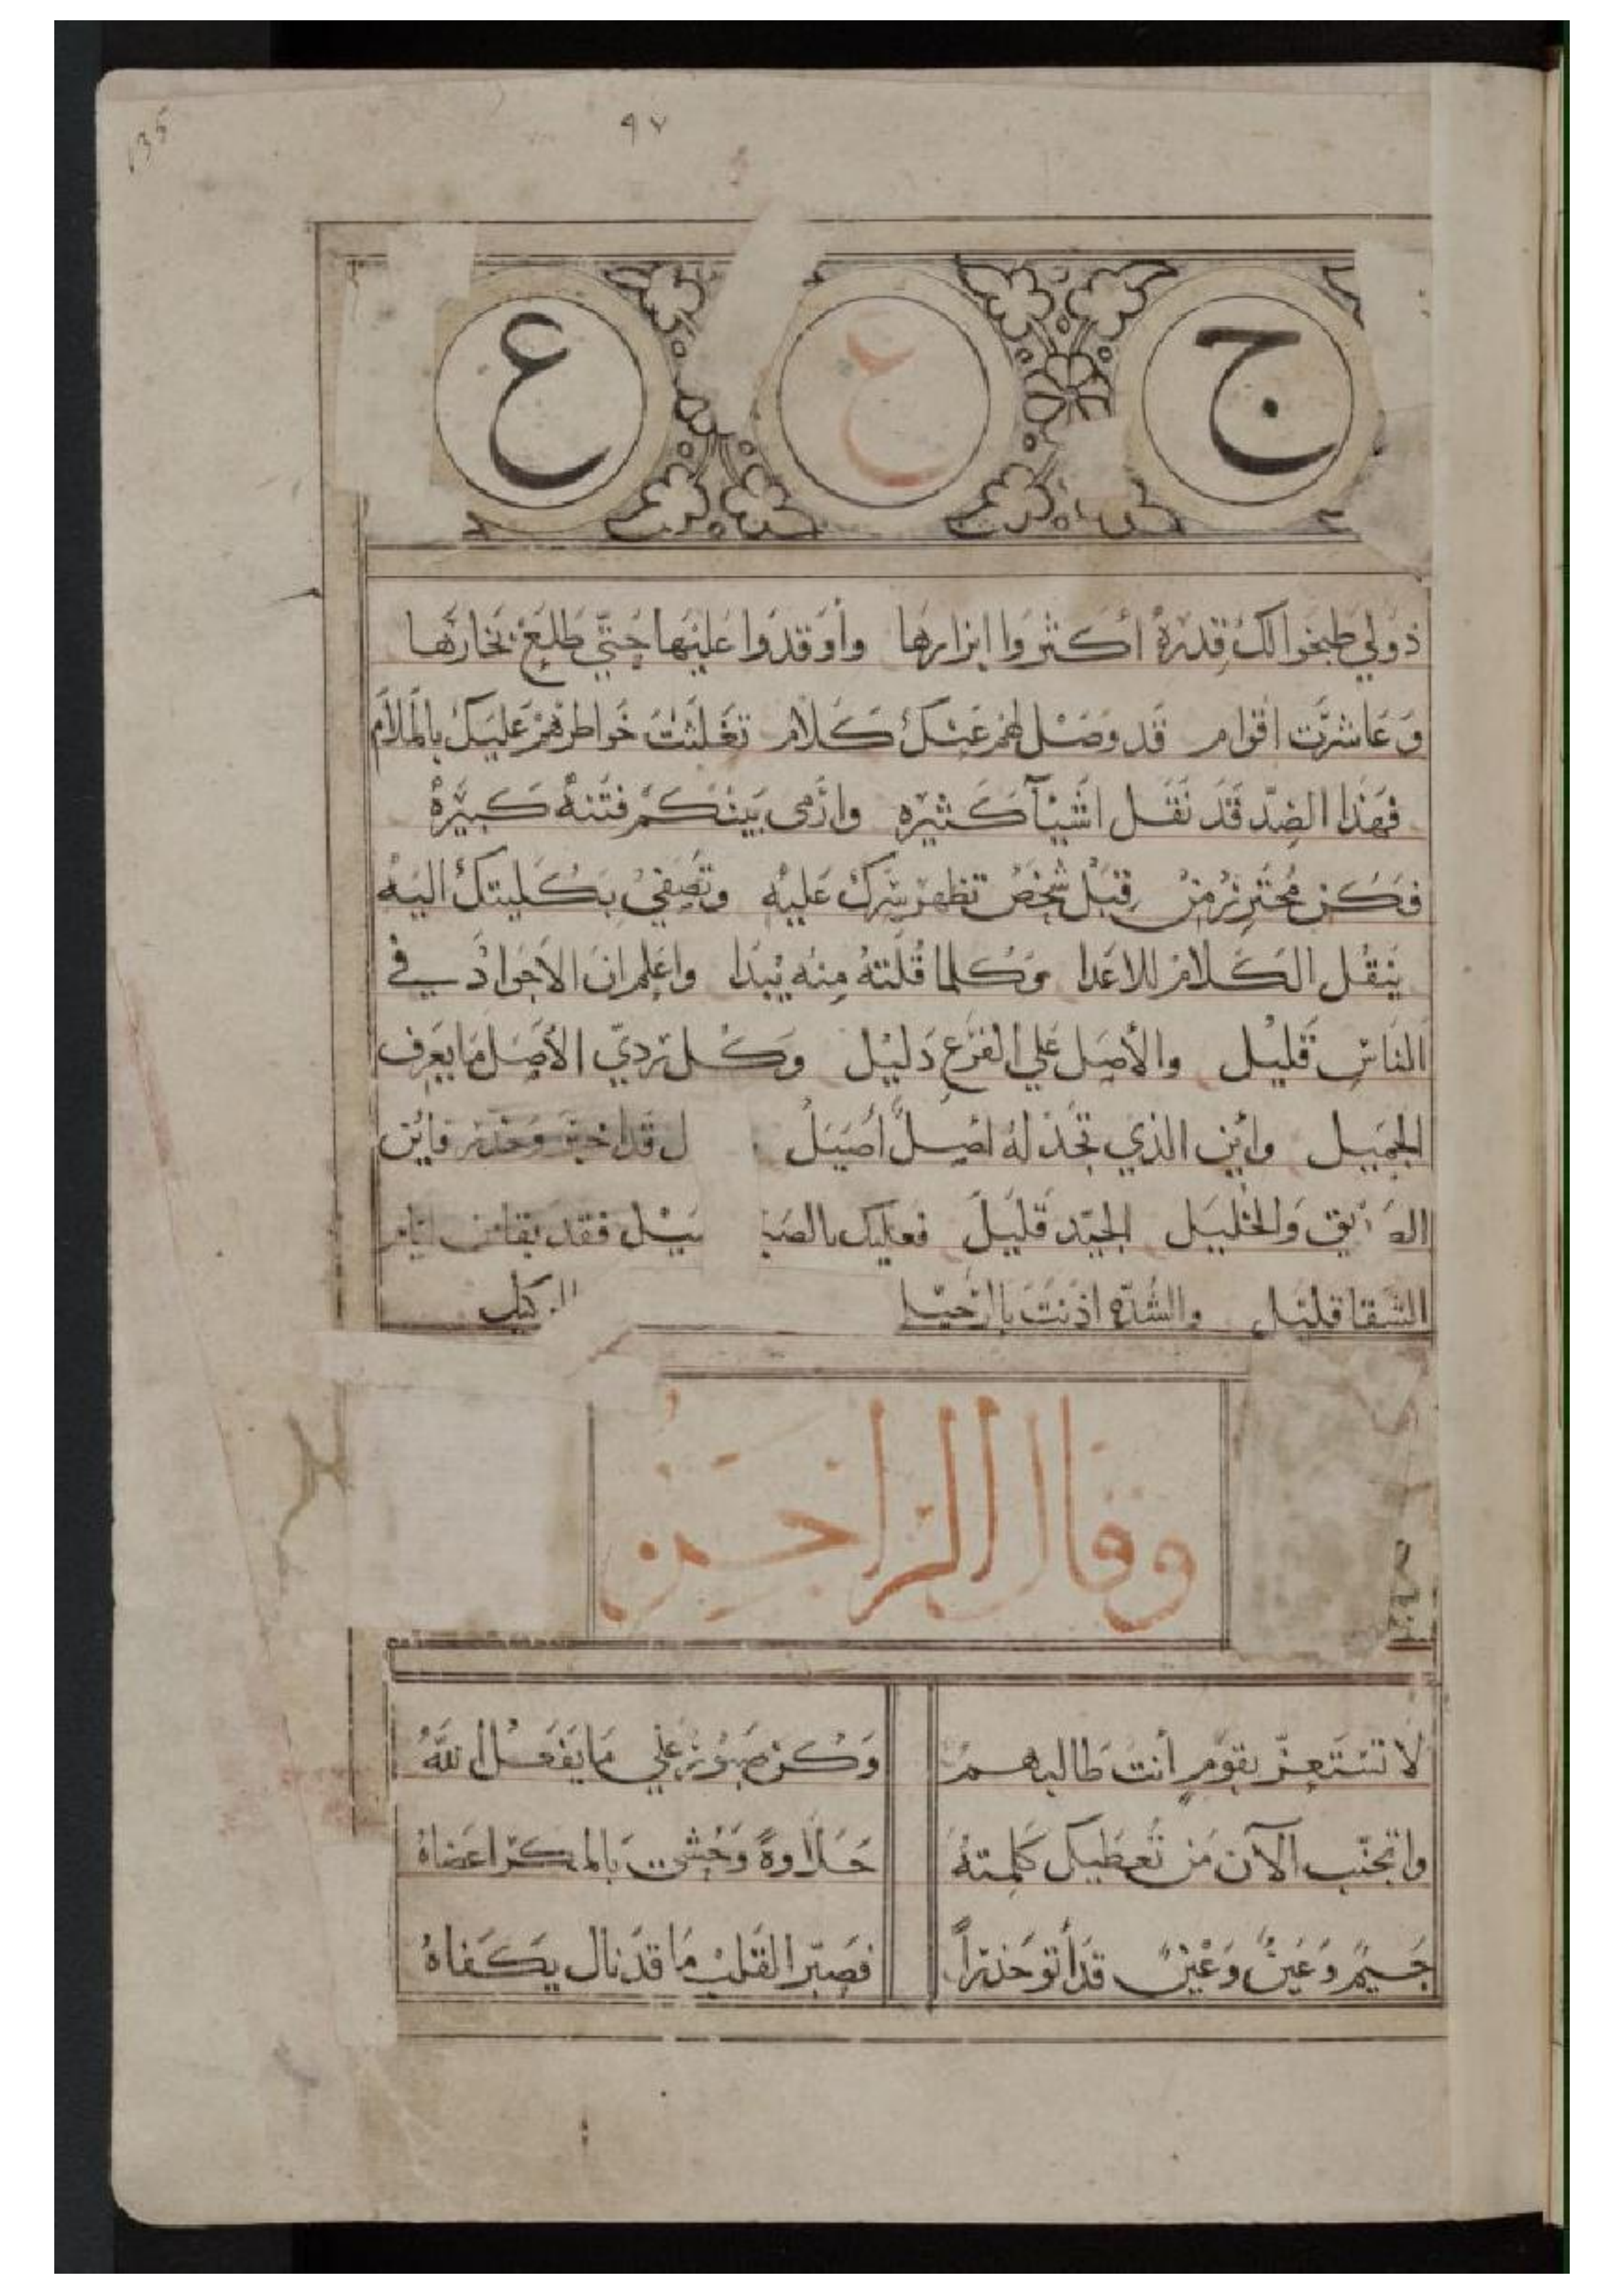 135
٩٧
ج ع ع
ذولي طبخوا لك قدرة اكثروا ابزارها واوقدوا عليها حتى طلع بخارها
وعاشرت اقوام قد وصل لهم عنك كلام تغلثت خواطرهم عليك بالملام
فهذا الضد قد نقل اشيآ كثيره وارمى بينكم فتنة كبيرة
فكن محترز من قبل شخص تظهر سرك عليه وتصفي بكليتك اليه
ينقل الكلام للاعدا وكلما قلته منه يبدا واعلم ان الاجواد في
الناس قليل والأصل علي الفرع دليل وكل ردي الأصل ما يعرف
الجميل واين الذي تجد له اصل أصيل ل قد اخذ حذره فاين
الصديق والخليل الجيد قليل فعليك بالصبر فقد بقا من ايام
الشقا قليل والشده اذنت بالرحيل
وقال الزاجر
لا تستعز بقوم أنت طالبهم وكن صبور علي ما يفعل الله
واتجنب الآن من تعطيك كلمته حلاوة وحشت بالمكر اعضاه
جيم وعين وعين قد أتو حذرا فصبر القلب ما قد نال يكفاه